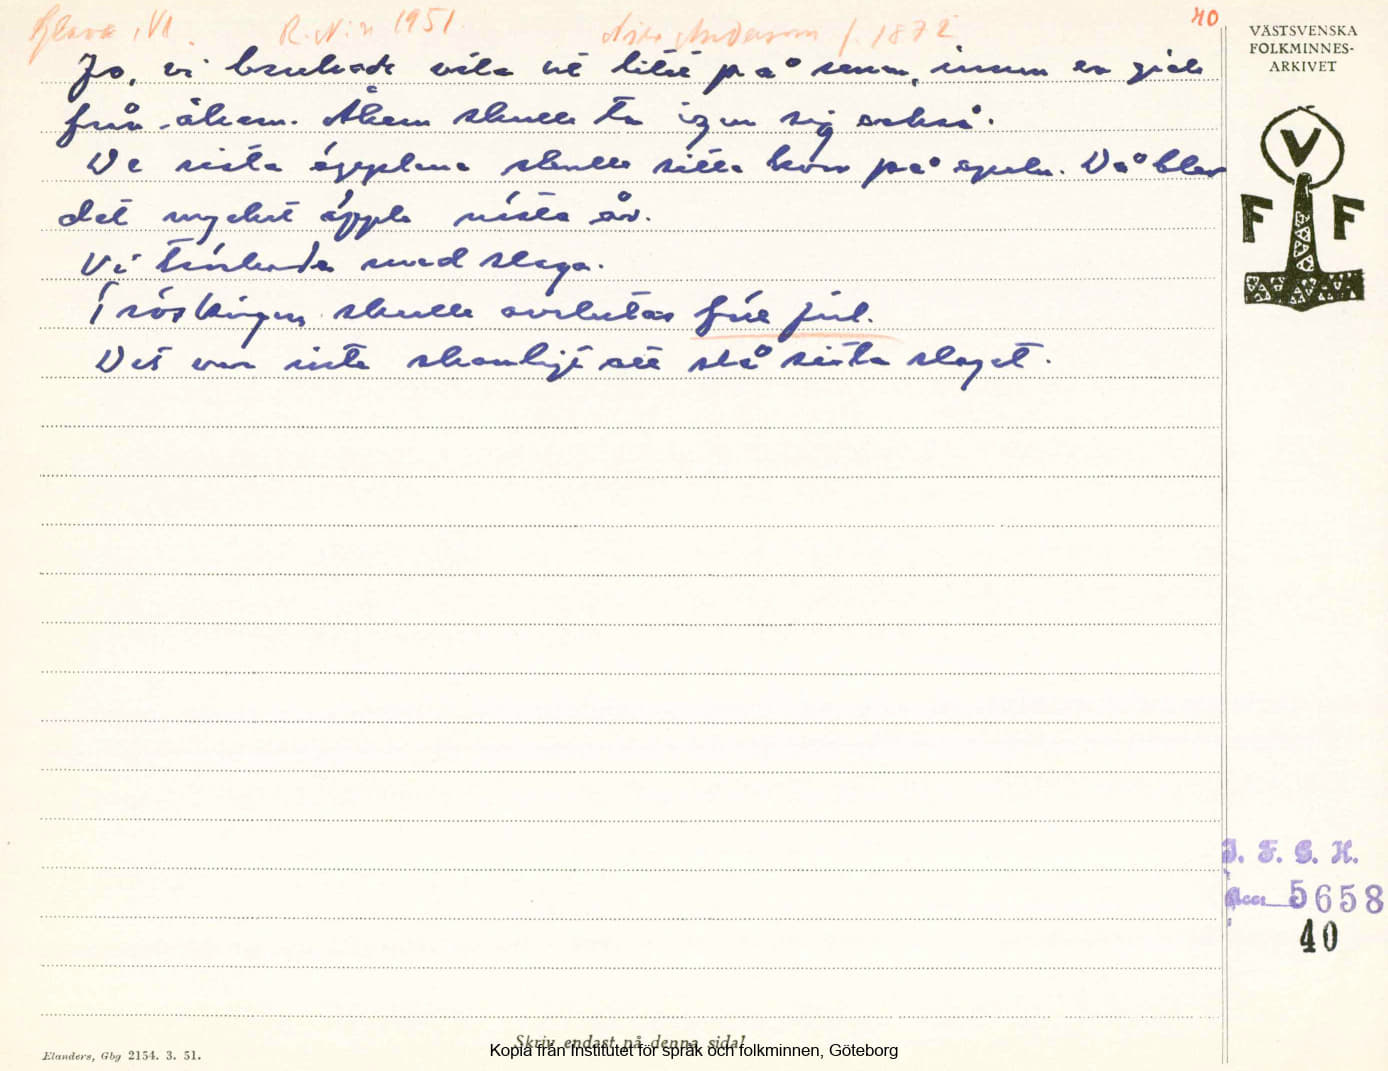 Glava, Vl. R. N-n 1951. Anderson f. 1872 40
VÄSTSVENSKA
FOLKMINNES-
ARKIVET
Jo, vi brukade vila ut litet på renen, innan en gick
från åkern. Åkern skulle ta igen sig också.
De sista äpplena skulle sitta kvar på apeln. Då blev
det mycket äpple nästa år.
Vi tröskade med slaga.
Tröskingen skulle avslutas före jul.
Det var inte skamligt att slå sista slaget.
V
F F
I. F. G. H.
Acc. 5658
40
Skriv endast på denna sida!
Elanders, Gbg 2154. 3. 51.
Kopia från Institutet för språk och folkminnen, Göteborg